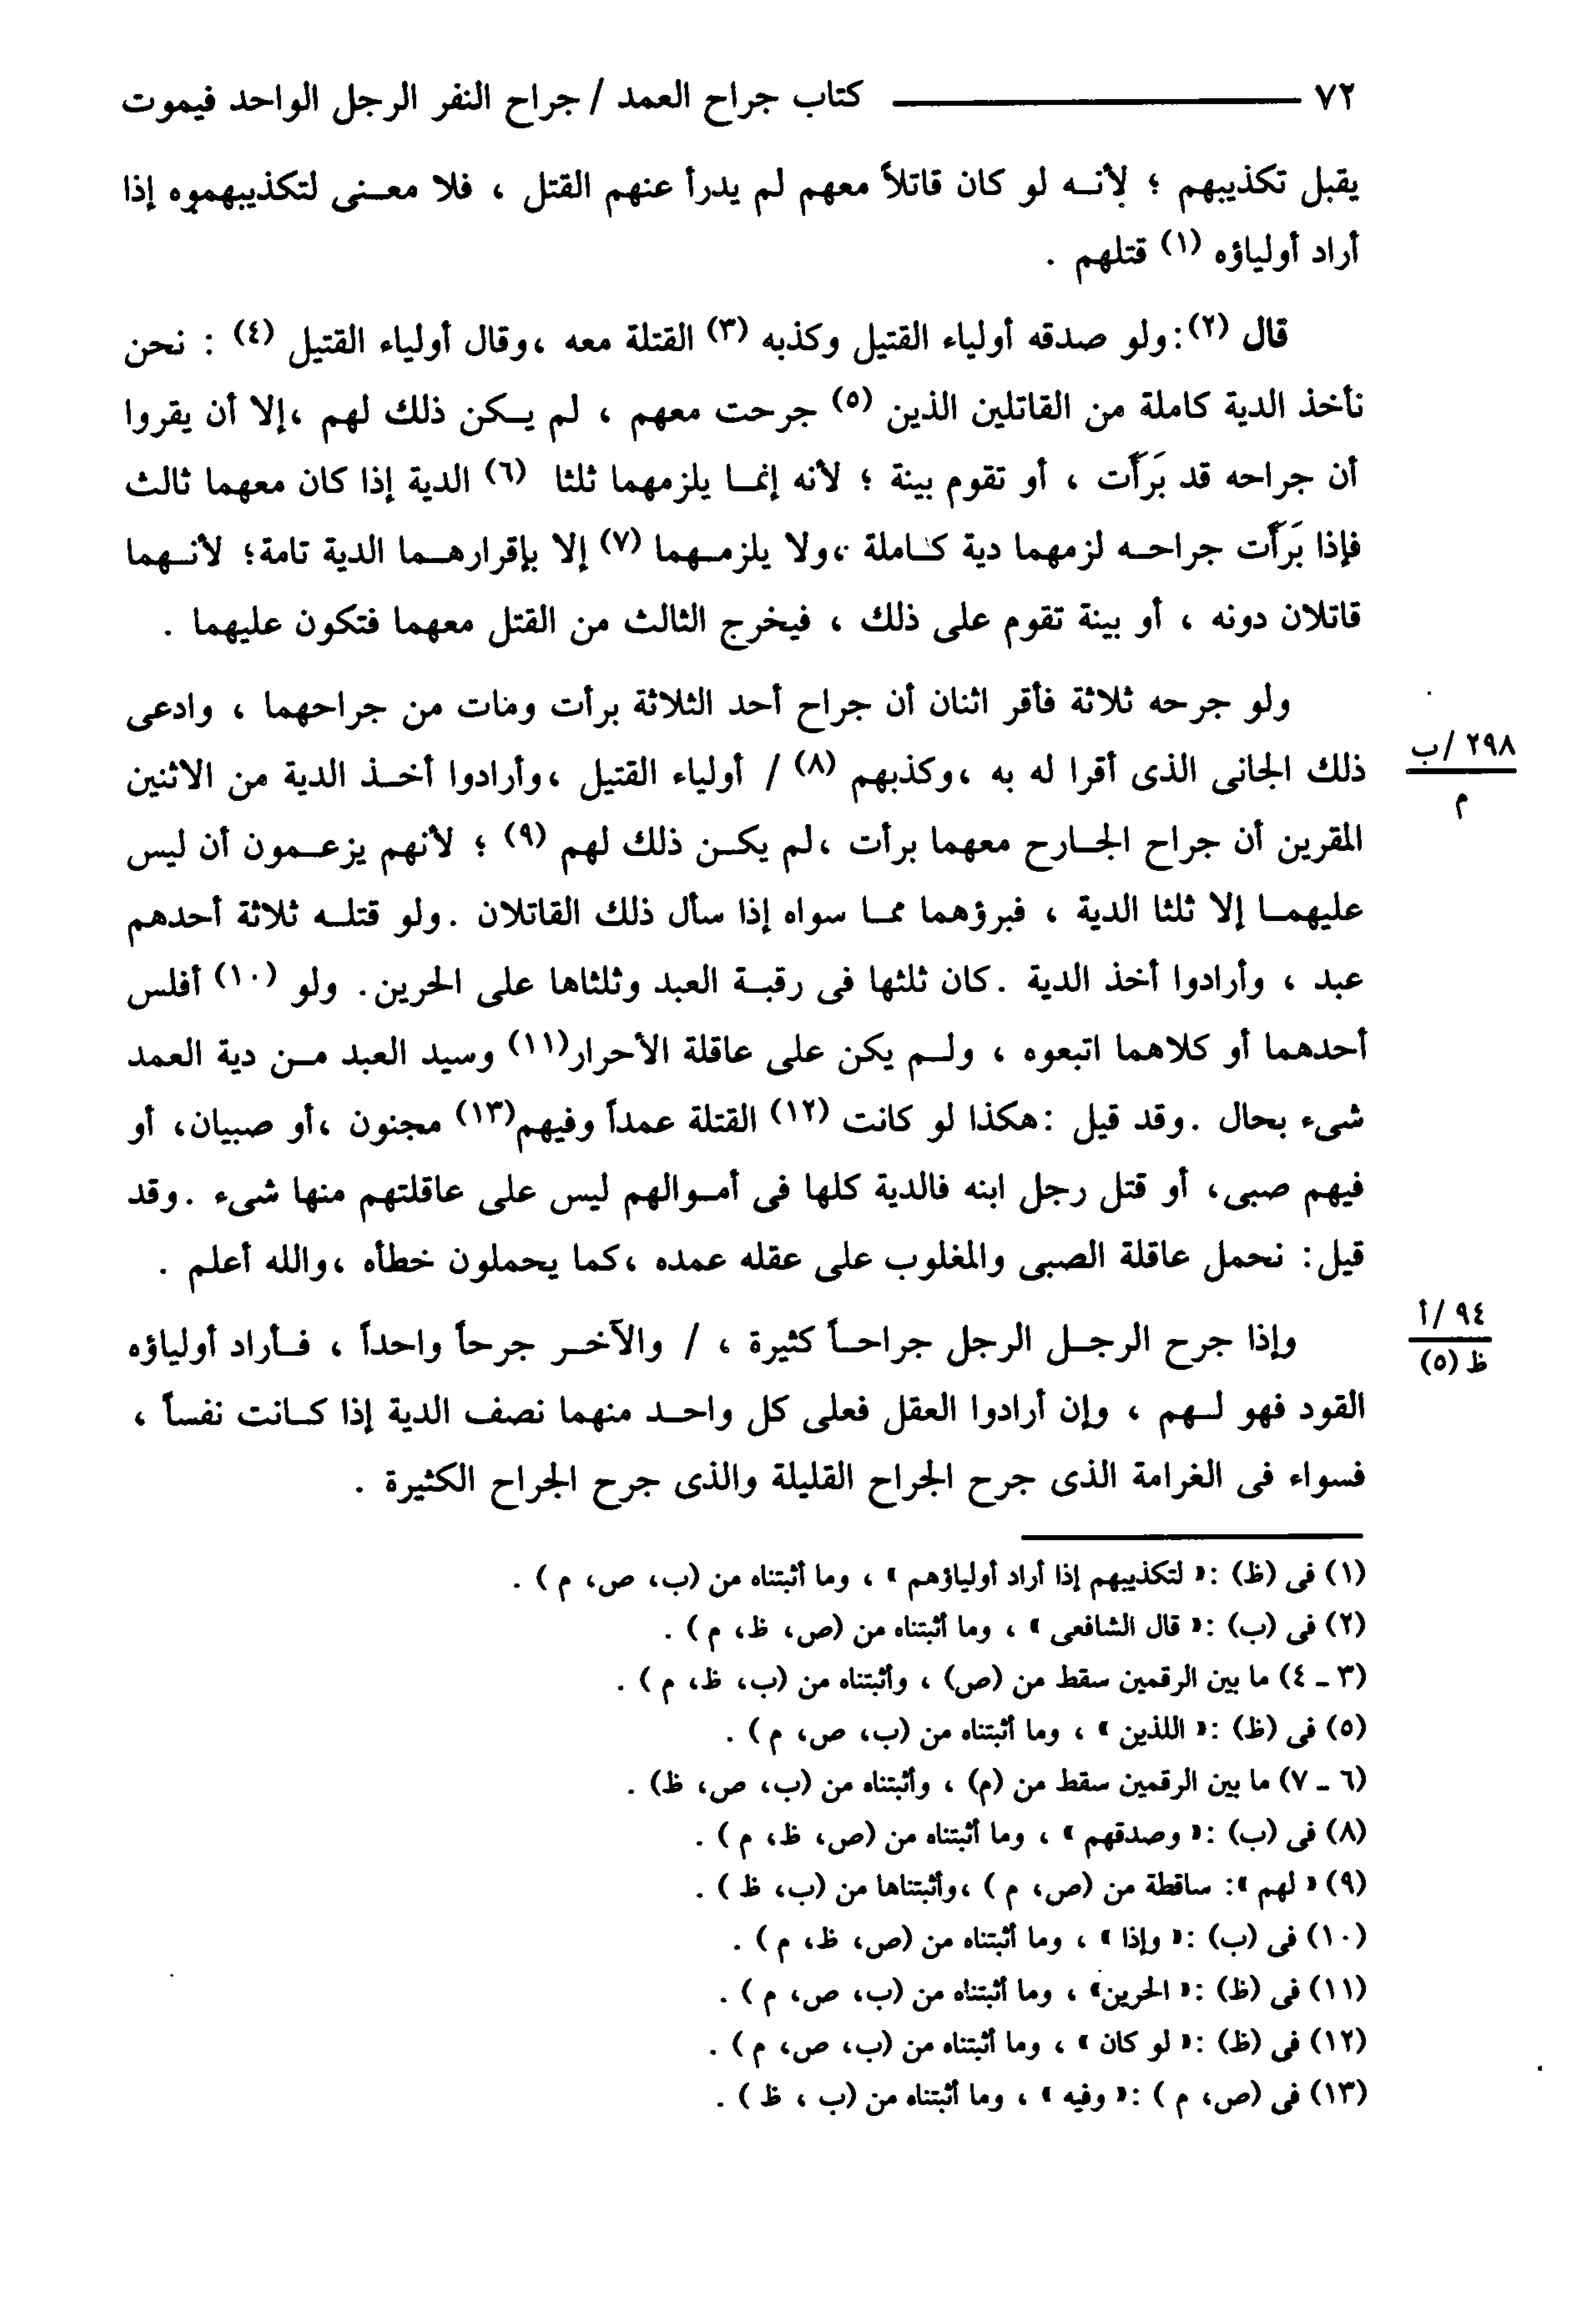 ٧٢ كتاب جراح العمد / جراح النفر الرجل الواحد فيموت
يقبل تكذيبهم ؛ لأنه لو كان قاتلاً معهم لم يدرأ عنهم القتل ، فلا معنى لتكذيبهموه إذا
أراد أولياؤه (١) قتلهم .
قال (٢): ولو صدقه أولياء القتيل وكذبه (٣) القتلة معه ، وقال أولياء القتيل (٤) : نحن
نأخذ الدية كاملة من القاتلين الذين (٥) جرحت معهم ، لم يكن ذلك لهم ، إلا أن يقروا
أن جراحه قد بَرَأَت ، أو تقوم بينة ؛ لأنه إنما يلزمهما ثلثا (٦) الدية إذا كان معهما ثالث
فإذا بَرَأَت جراحه لزمهما دية كاملة ، ولا يلزمهما (٧) إلا بإقرارهما الدية تامة؛ لأنهما
قاتلان دونه ، أو بينة تقوم على ذلك ، فيخرج الثالث من القتل معهما فتكون عليهما .
ولو جرحه ثلاثة فأقر اثنان أن جراح أحد الثلاثة برأت ومات من جراحهما ، وادعى
٢٩٨ /ب
ذلك الجانى الذى أقرا له به ، وكذبهم (٨) / أولياء القتيل ، وأرادوا أخذ الدية من الاثنين
م
المقرين أن جراح الجارح معهما برأت ، لم يكن ذلك لهم (٩) ؛ لأنهم يزعمون أن ليس
عليهما إلا ثلثا الدية ، فبرؤهما مما سواه إذا سأل ذلك القاتلان . ولو قتله ثلاثة أحدهم
عبد ، وأرادوا أخذ الدية . كان ثلثها فى رقبة العبد وثلثاها على الحرين. ولو (١٠) أفلس
أحدهما أو كلاهما اتبعوه ، ولم يكن على عاقلة الأحرار(١١) وسيد العبد من دية العمد
شىء بحال . وقد قيل : هكذا لو كانت (١٢) القتلة عمداً وفيهم(١٣) مجنون ، أو صبيان، أو
فيهم صبى، أو قتل رجل ابنه فالدية كلها فى أموالهم ليس على عاقلتهم منها شىء . وقد
قيل: نحمل عاقلة الصبى والمغلوب على عقله عمده ، كما يحملون خطأه ، والله أعلم .
٩٤ /أ
وإذا جرح الرجل الرجل جراحاً كثيرة ، / والآخر جرحاً واحداً ، فأراد أولياؤه
ظ (٥)
القود فهو لهم ، وإن أرادوا العقل فعلى كل واحد منهما نصف الدية إذا كانت نفساً ،
فسواء فى الغرامة الذى جرح الجراح القليلة والذى جرح الجراح الكثيرة .
(١) فى (ظ) : « لتكذيبهم إذا أراد أولياؤهم » ، وما أثبتناه من (ب، ص، م ) .
(٢) فى (ب) : « قال الشافعى » ، وما أثبتناه من (ص، ظ، م ) .
(٣ ـ ٤) ما بين الرقمين سقط من (ص) ، وأثبتناه من (ب، ظ، م ) .
(٥) فى (ظ) : « اللذين » ، وما أثبتناه من (ب، ص، م ) .
(٦ ـ ٧) ما بين الرقمين سقط من (م) ، وأثبتناه من (ب، ص، ظ) .
(٨) فى (ب) : « وصدقهم » ، وما أثبتناه من (ص، ظ، م ) .
(٩) « لهم »: ساقطة من (ص، م ) ، وأثبتناها من (ب، ظ ) .
(١٠) فى (ب) : « وإذا » ، وما أثبتناه من (ص، ظ، م ) .
(١١) فى (ظ) : « الحرين» ، وما أثبتناه من (ب، ص، م ) .
(١٢) فى (ظ) : « لو كان » ، وما أثبتناه من (ب، ص، م ) .
(١٣) فى (ص، م ) : « وفيه » ، وما أثبتناه من (ب ، ظ ) .